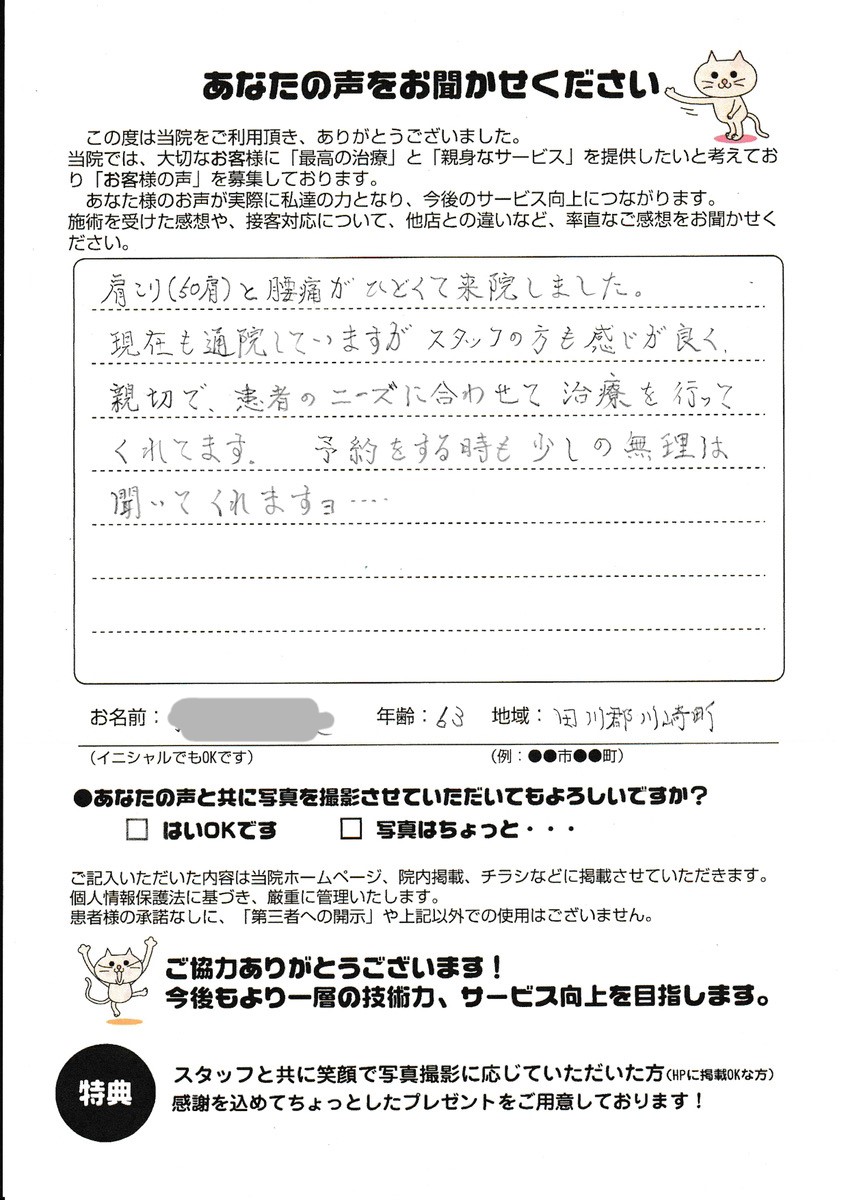 あなたの声をお聞かせください
この度は当院をご利用頂き、ありがとうございました。
当院では、大切なお客様に「最高の治療」と「親身なサービス」を提供したいと考えてお
り「お客様の声」を募集しております。
あなた様のお声が実際に私達の力となり、今後のサービス向上につながります。
施術を受けた感想や、接客対応について、他店との違いなど、率直なご感想をお聞かせく
ださい。
肩こり(50肩)と腰痛がひどくて来院しました。
現在も通院していますがスタッフの方も感じが良く、
親切で、患者のニーズに合わせて治療を行って
くれてます。 予約をする時も少しの無理は
聞いてくれますョ····
お名前: 年齢:63 地域:田川郡川崎町
(イニシャルでもOKです) (例:●●市●●町)
●あなたの声と共に写真を撮影させていただいてもよろしいですか?
□ はいOKです □ 写真はちょっと・・・
ご記入いただいた内容は当院ホームページ、院内掲載、チラシなどに掲載させていただきます。
個人情報保護法に基づき、厳重に管理いたします。
患者様の承諾なしに、「第三者への開示」や上記以外での使用はございません。
ご協力ありがとうございます!
今後もより一層の技術力、サービス向上を目指します。
特典
スタッフと共に笑顔で写真撮影に応じていただいた方(HPに掲載OKな方)
感謝を込めてちょっとしたプレゼントをご用意しております!